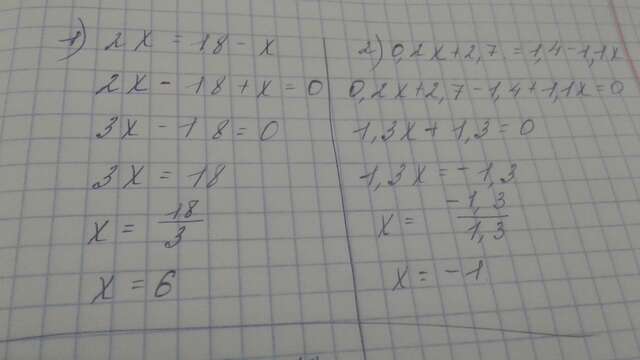 1) 2x = 18 - x
2x - 18 + x = 0
3x - 18 = 0
3x = 18
x = 18/3
x = 6
2) 0,2x + 2,7 = 1,4 - 1,1x
0,2x + 2,7 - 1,4 + 1,1x = 0
1,3x + 1,3 = 0
1,3x = -1,3
x = -1,3/1,3
x = -1